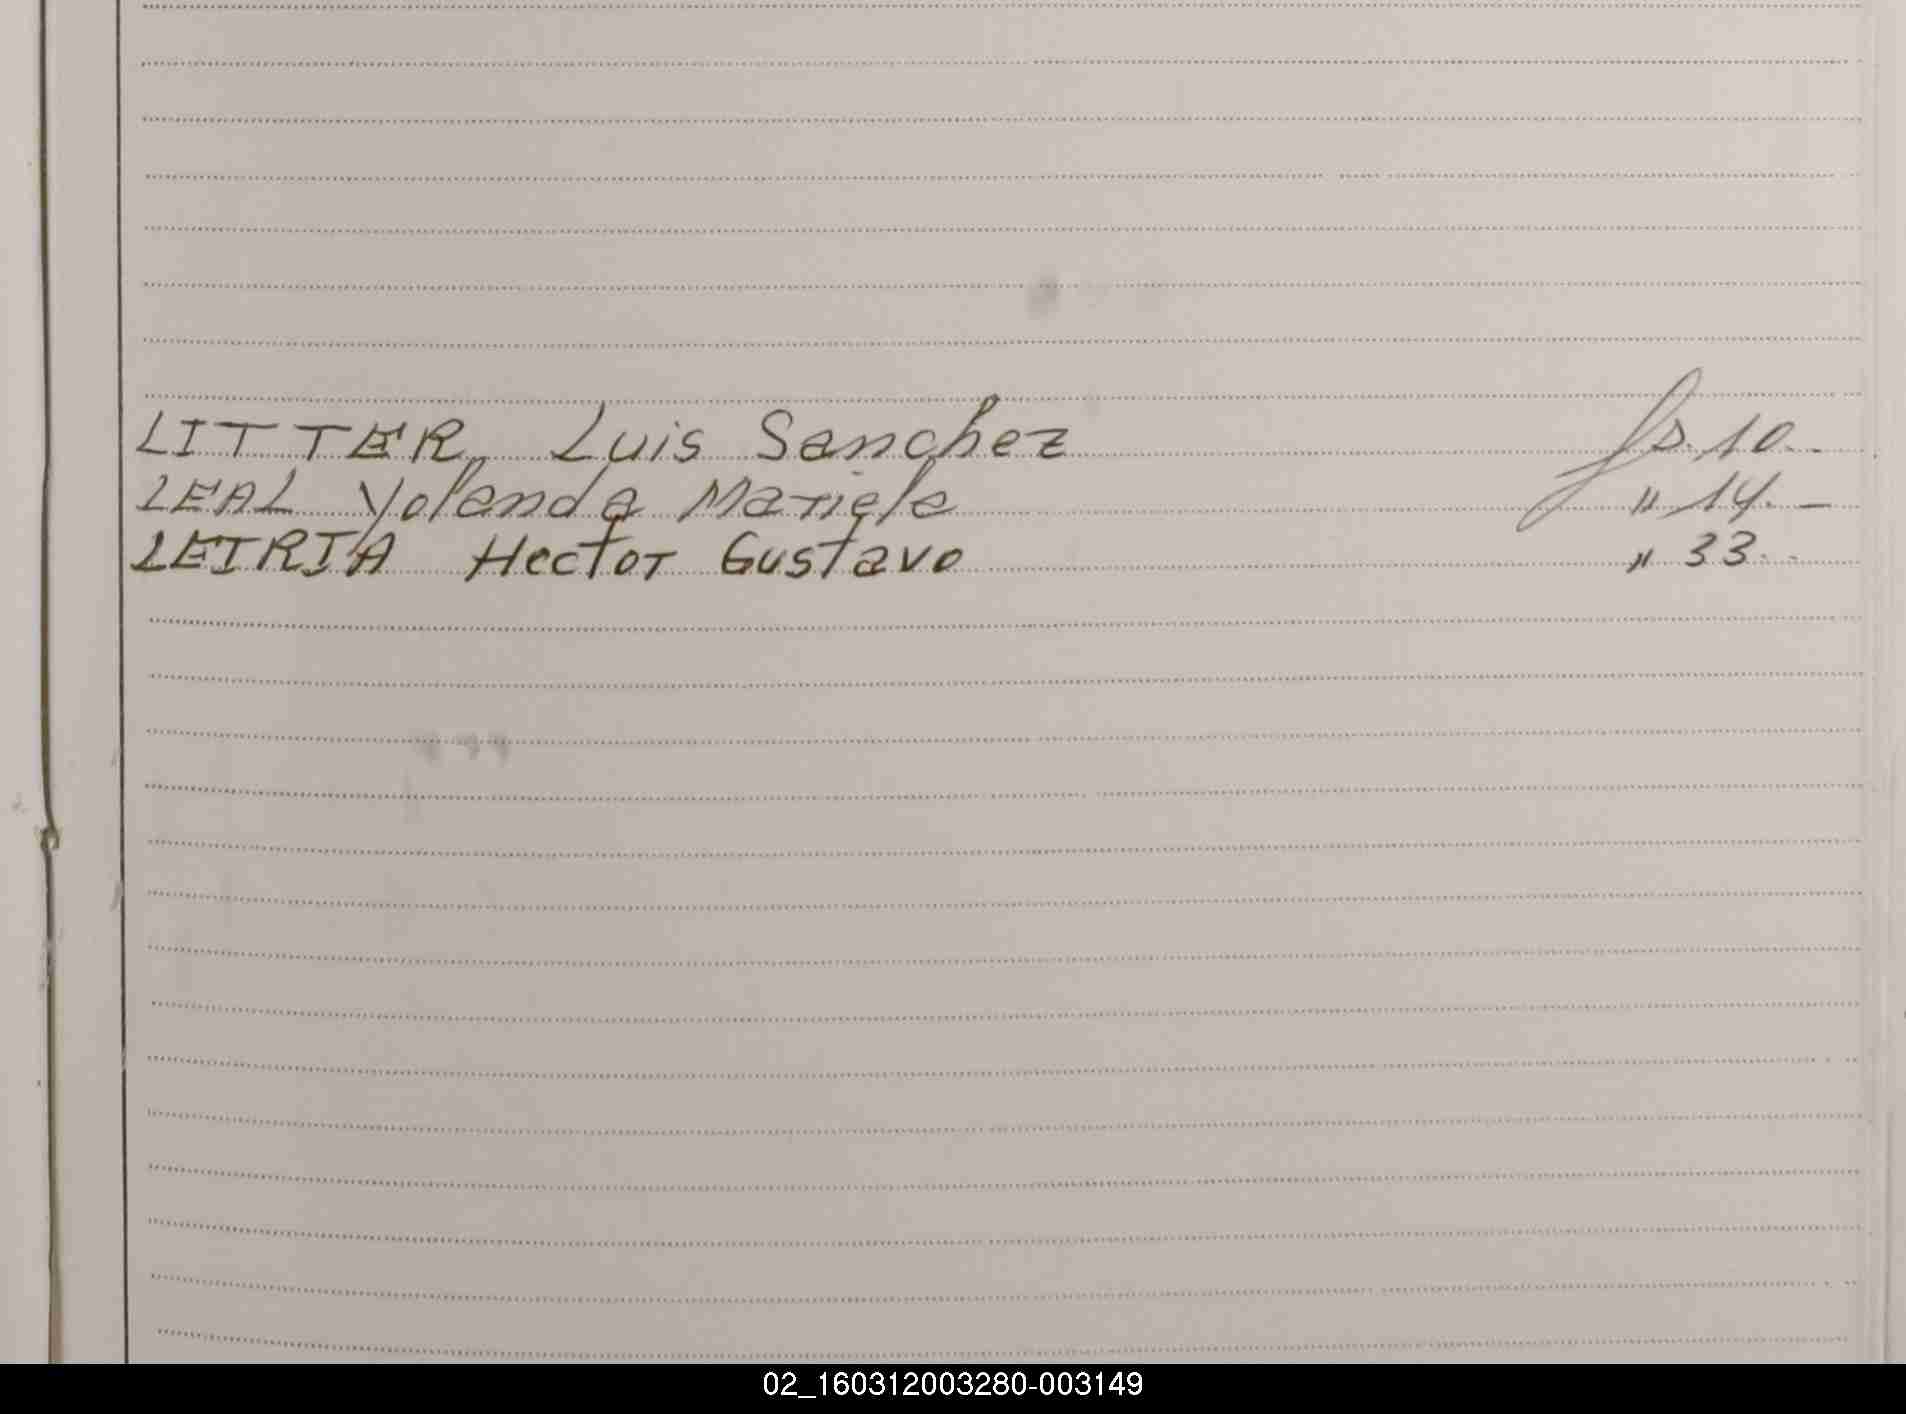 LITTER, Luis Sanchez fs. 10.-
LEAL Yolanda Mariela " 14. -
LEIRIA Hector Gustavo " 33.-
02_160312003280-003149